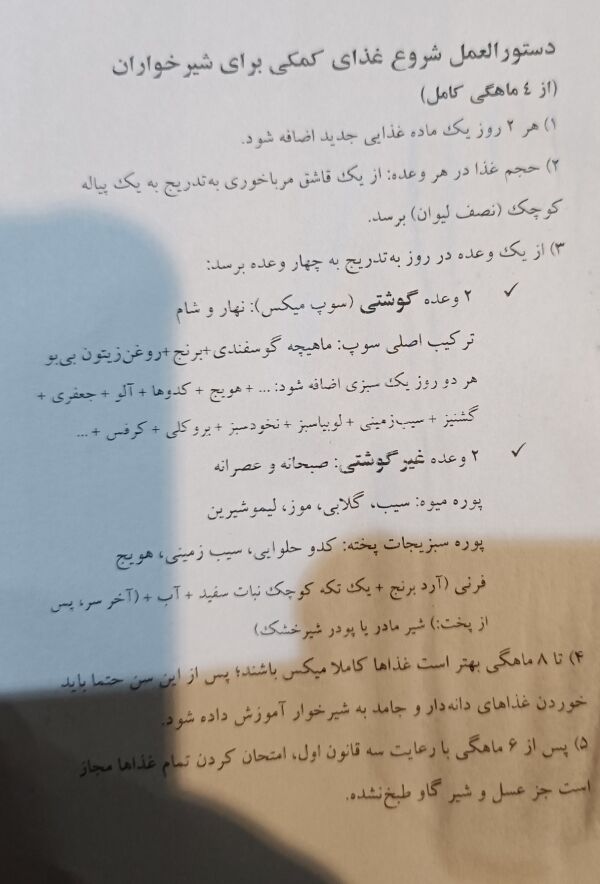 دستورالعمل شروع غذای کمکی برای شیرخواران
(از ٤ ماهگی کامل)
۱) هر ۲ روز یک ماده غذایی جدید اضافه شود.
۲) حجم غذا در هر وعده: از یک قاشق مرباخوری به‌تدریج به یک پیاله
کوچک (نصف لیوان) برسد.
۳) از یک وعده در روز به‌تدریج به چهار وعده برسد:
✓ ۲ وعده گوشتی (سوپ میکس): نهار و شام
ترکیب اصلی سوپ: ماهیچه گوسفندی+برنج+روغن‌زیتون بی‌بو
هر دو روز یک سبزی اضافه شود: ... + هویج + کدوها + آلو + جعفری +
گشنیز + سیب‌زمینی + لوبیاسبز + نخودسبز + بروکلی + کرفس + ...
✓ ۲ وعده غیرگوشتی: صبحانه و عصرانه
پوره میوه: سیب، گلابی، موز، لیموشیرین
پوره سبزیجات پخته: کدو حلوایی، سیب زمینی، هویج
فرنی (آرد برنج + یک تکه کوچک نبات سفید + آب + (آخر سر، پس
از پخت:) شیر مادر یا پودر شیرخشک)
۴) تا ۸ ماهگی بهتر است غذاها کاملا میکس باشند؛ پس از این سن حتما باید
خوردن غذاهای دانه‌دار و جامد به شیرخوار آموزش داده شود.
۵) پس از ۶ ماهگی با رعایت سه قانون اول، امتحان کردن تمام غذاها مجاز
است جز عسل و شیر گاو طبخ‌نشده.